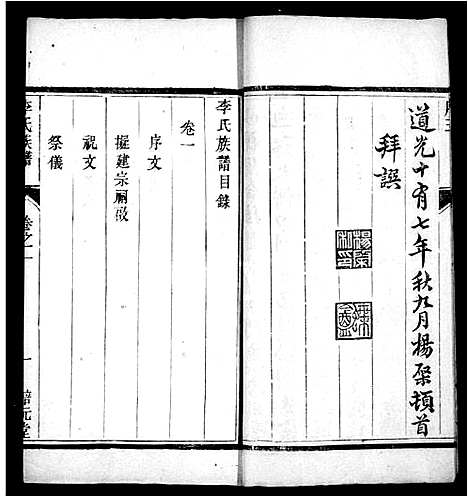 道光十有七年秋九月楊棨頓首
拜譔
李氏族譜目錄
卷一
序文
擬建宗祠啟
祝文
祭儀
李氏族譜
卷之一
一